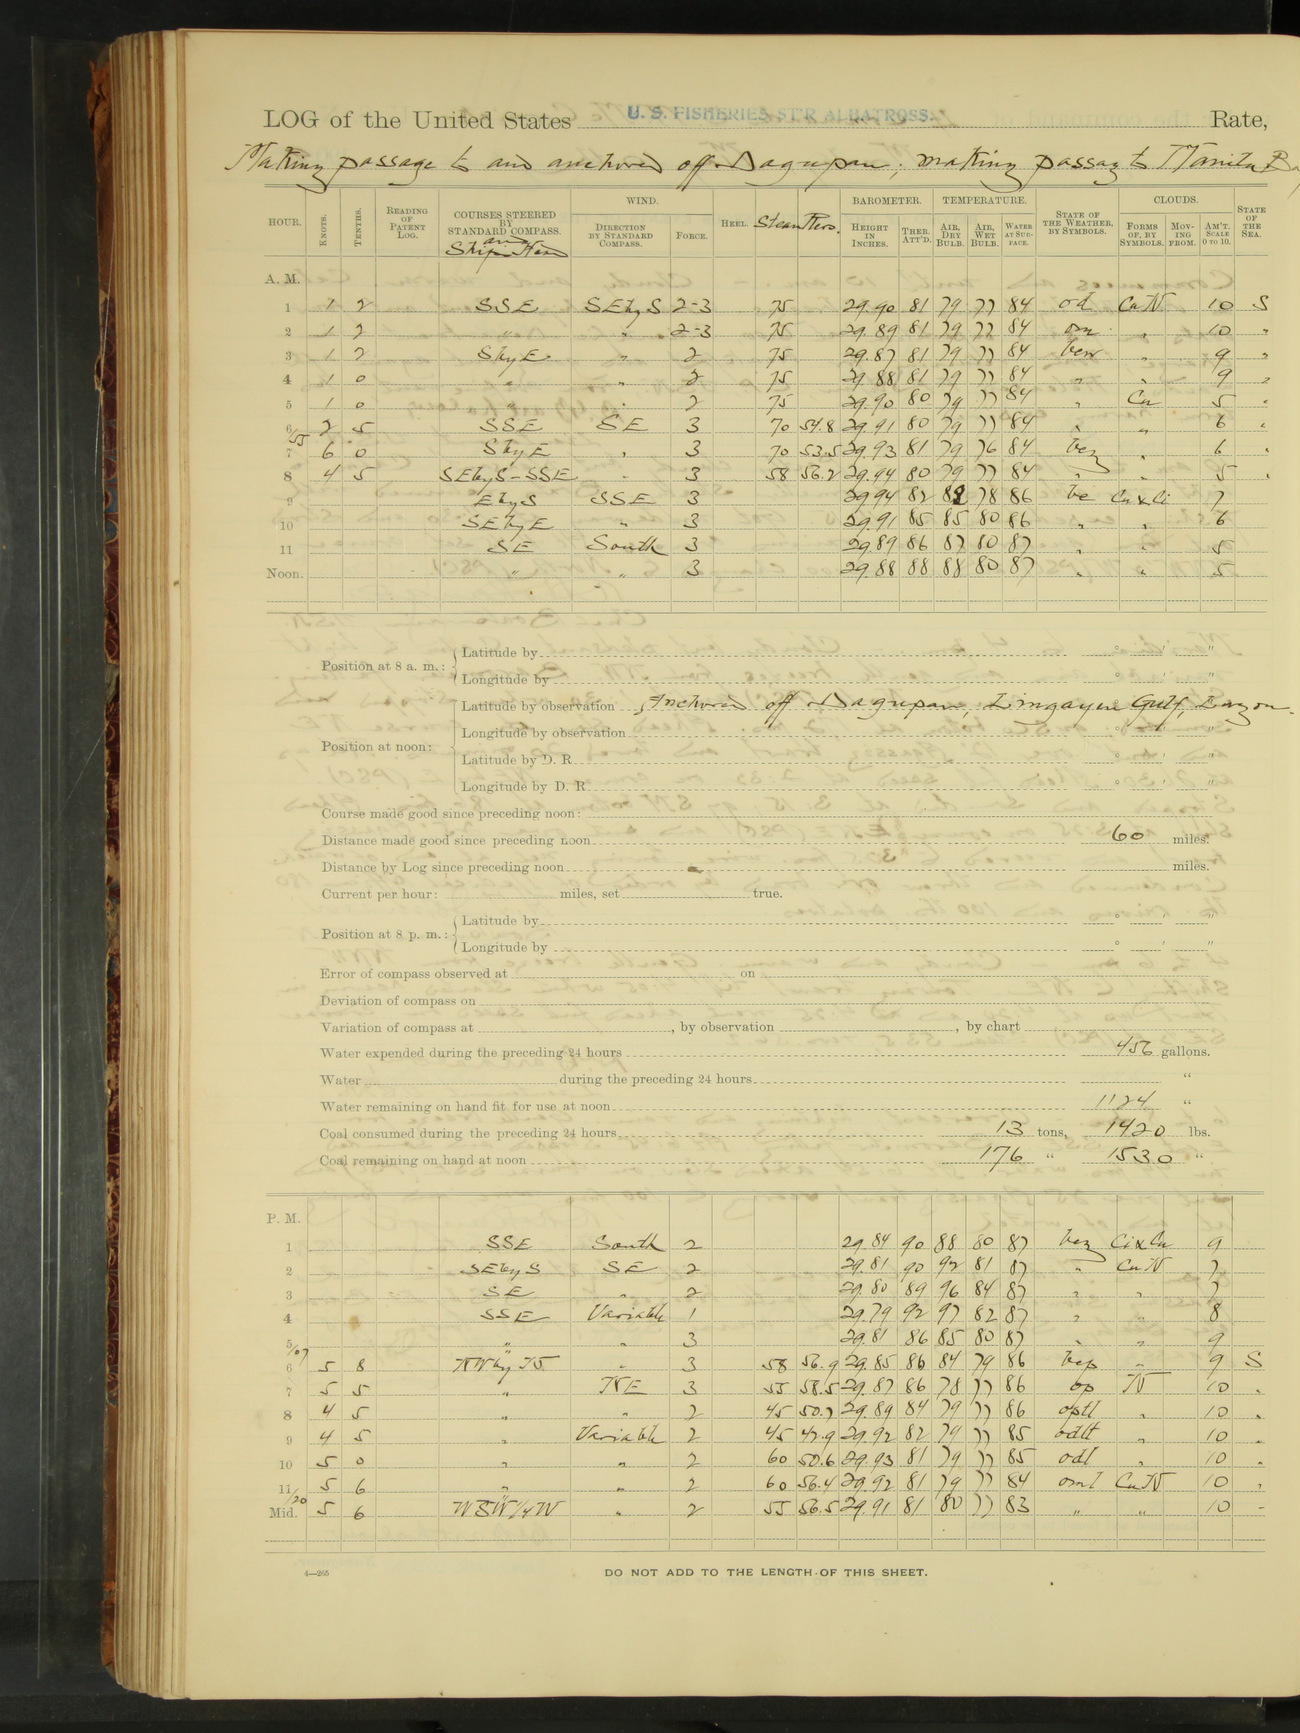 LOG of the United States U. S. FISHERIES ST'R ALBATROSS. Rate,
Making passage to and anchored off Dagupan; making passag to Manila Bay
HOUR. KNOTS. TENTHS. READING OF PATENT LOG. COURSES STEERED BY STANDARD COMPASS. and Ships Head WIND. DIRECTION BY STANDARD COMPASS. FORCE. HEEL. Steam Revo. BAROMETER. HEIGHT IN INCHES. THER. ATT'D. TEMPERATURE. AIR, DRY BULB. AIR, WET BULB. WATER AT SURFACE. STATE OF THE WEATHER, BY SYMBOLS. CLOUDS. FORMS OF, BY SYMBOLS. MOVING FROM. AM'T. SCALE 0 TO 10. STATE OF THE SEA.
A. M.
1 1 2 SSE SEbyS 2-3 75 29.90 81 79 77 84 od CuN 10 S
2 1 2 " " 2-3 75 29.89 81 79 77 84 om " 10 "
3 1 2 SbyE " 2 75 29.87 81 79 77 84 bcm " 9 "
4 1 0 " " 2 75 29.88 81 79 77 84 " " 9 "
5 1 0 " " 2 75 29.90 80 79 77 84 " Cu 5 "
6 2 5 SSE SE 3 70 54.8 29.91 80 79 77 84 " " 6 "
/55
7 6 0 SbyE " 3 70 53.5 29.93 81 79 76 84 bcz " 6 "
8 4 5 SEbyS-SSE " 3 58 56.2 29.94 80 79 77 84 " " 5 "
9 EbyS SSE 3 29.94 82 82 78 86 bc Cu & Ci 7
10 SEbyE " 3 29.91 85 85 80 86 " " 6
11 SE South 3 29.89 86 87 80 87 " " 5
Noon. " " 3 29.88 88 88 80 87 " " 5
Position at 8 a. m.: Latitude by ° ' "
Longitude by ° ' "
Position at noon: Latitude by observation Anchored off Dagupan, Lingayen Gulf, Luzon.
Longitude by observation ° ' "
Latitude by D. R. ° ' "
Longitude by D. R. ° ' "
Course made good since preceding noon:
Distance made good since preceding noon 60 miles.
Distance by Log since preceding noon miles.
Current per hour: miles, set true.
Position at 8 p. m.: Latitude by ° ' "
Longitude by ° ' "
Error of compass observed at on
Deviation of compass on
Variation of compass at , by observation , by chart
Water expended during the preceding 24 hours 456 gallons.
Water during the preceding 24 hours "
Water remaining on hand fit for use at noon 1124 "
Coal consumed during the preceding 24 hours 13 tons, 1420 lbs.
Coal remaining on hand at noon 176 " 1530 "
P. M.
1 SSE South 2 29.84 90 88 80 87 bcz Ci & Cu 9
2 SEbyS SE 2 29.81 90 92 81 87 " CuN 7
3 SE " 2 29.80 89 96 84 87 " " 7
4 SSE Variable 1 29.79 92 97 82 87 " " 8
5 " " 3 29.81 86 85 80 87 " " 9
/07
6 5 8 NWbyN " 3 58 56.9 29.85 86 84 79 86 bcp " 9 S
7 5 5 " NE 3 55 58.5 29.87 86 78 77 86 op N 10 "
8 4 5 " " 2 45 50.7 29.89 84 79 77 86 optl " 10 "
9 4 5 " Variable 2 45 47.9 29.92 82 79 77 85 odlt " 10 "
10 5 0 " " 2 60 50.6 29.93 81 79 77 85 odl " 10 "
11 5 6 " " 2 60 56.4 29.92 81 79 77 84 oml CuN 10 "
/20
Mid. 5 6 WSW/4W " 2 55 56.5 29.91 81 80 77 83 " " 10 "
4—265
DO NOT ADD TO THE LENGTH OF THIS SHEET.